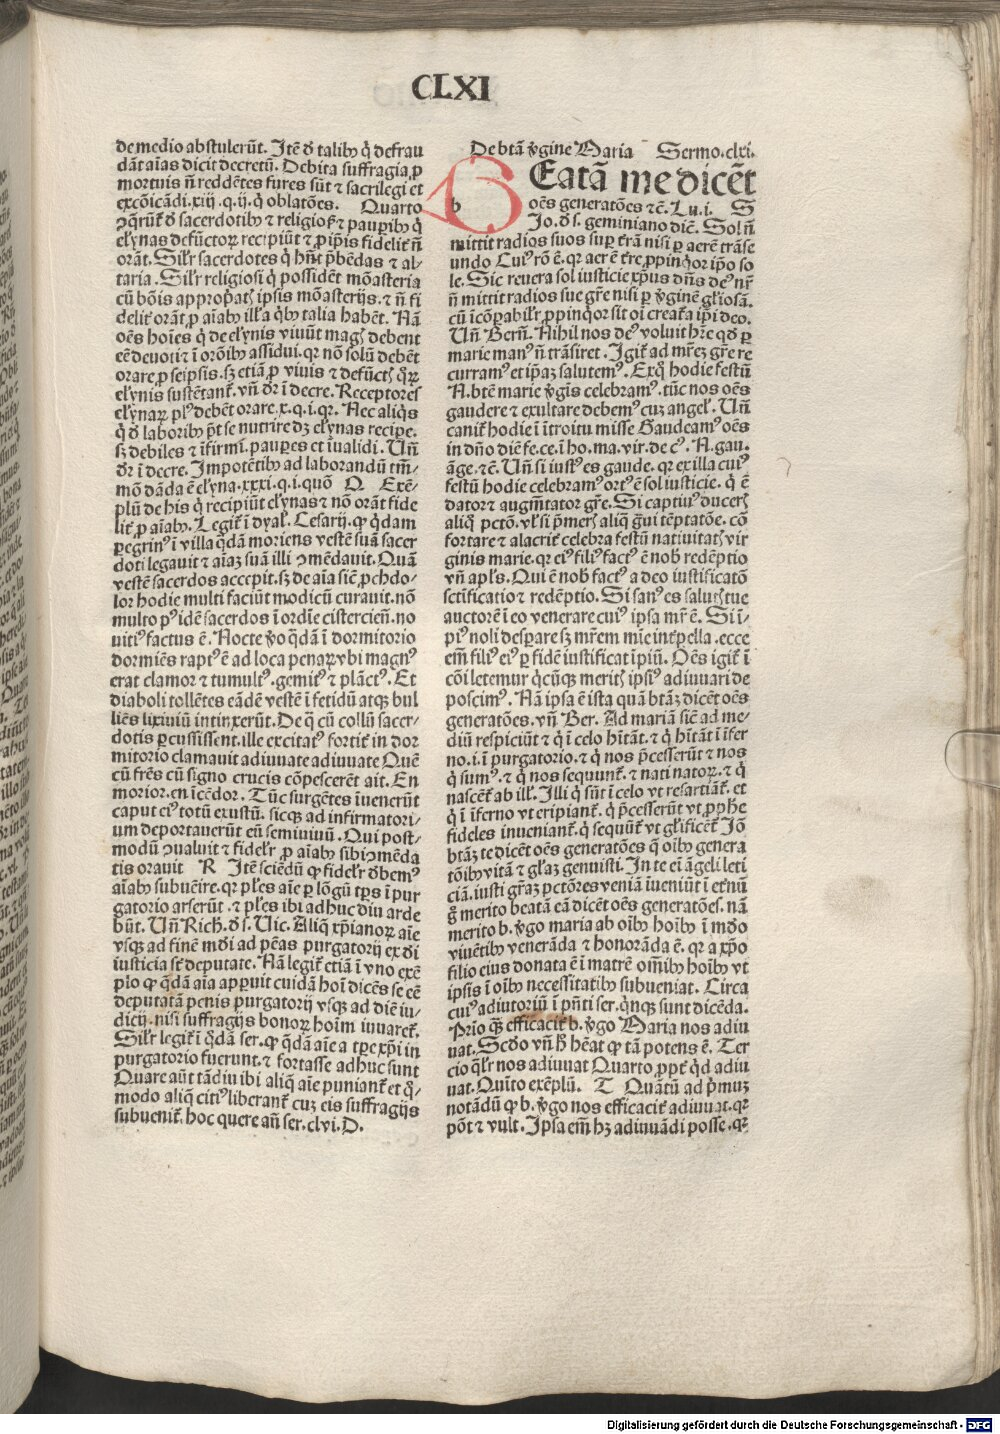 CLXI
de medio abstulerūt. Itē ꝺ̄ talibꝫ q̇ defrau
dāt aīas dicit decretū. Debita suffragia ꝓ
mortuis n̄ reddētes fures sūt ⁊ sacrilegi et
excōicādi .xiij .q.ij. q̇ oblatōes. Quarto
ꝯq̇runt̄ ꝺ̄ sacerdotibꝫ ⁊ religiosꝭ ⁊ paupibꝫ q̇
elynas defūctoꝝ recipiūt ⁊ ꝓ ip̄is fidelit̄ n̄
orāt. Sil̄r sacerdotes q̇ hn̄t p̄bēdas ⁊ al-
taria. Sil̄r religiosi q̇ possidēt mōasteria
cū bōis appropatꝭ ipsis mōasterijs. ⁊ n̄ fi
delit̄ orāt ꝓ aīabꝫ illis a qͥbꝫ talia habēt. Nā
oēs hoīes q̇ de elynis viuūt magꝭ debent
eē deuoti ⁊ ī orōibꝫ assidui. qꝛ nō solū debēt
orare ꝓ seipsis. sꝫ etiā ꝓ viuis ⁊ defūctꝭ qͦꝝ
elynis sustētant̄. vn̄ dr̄ ī decre. Receptores
elynaꝝ plꝰ debēt orare .x.q.i.qꝛ. Nec aliqͥs
q̇ ꝺ̄ laboribꝫ p̄t se nutrire dꝫ elynas recipe.
sꝫ debiles ⁊ īfirmi. paupes et īualidi. Vn̄
dr̄ ī decre. Impotētibꝫ ad laborandū tm̄-
mō dāda ē elyna .xxxi.q.i. quō Q Exē-
plū de his q̇ recipiūt elynas ⁊ nō orāt fide
lit̄ ꝓ aīabꝫ. Legit̄ ī dyal. Cesarij. ꝙ qͥdam
pegrinꝰ ī villa q̇dā moriens vestē suā sacer
doti legauit ⁊ aīaꝫ suā illi ꝯmēdauit. Quā
vestē sacerdos accepit. sꝫ de aīa sic̄ ꝓchdo-
lor hodie multi faciūt modicū curauit. nō
multo pꝰ idē sacerdos ī ordīe cistercien̄. no
uitiꝰ factus ē. Nocte v̊o qͣdā ī dormitorio
dormiēs raptꝰ ē ad loca penaꝝ vbi magnꝰ
erat clamor ⁊ tumultꝰ. gemitꝰ ⁊ plāctꝰ. Et
diaboli tollētes eādē vestē ī fetidū atqꝫ bul
liēs lixiuiū intinxerūt. De q̊ cū collū sacer-
dotis pcussissent. ille excitatꝰ fortit̄ in dor
mitorio clamauit adiuuate adiuuate Quē
cū fr̄es cū signo crucis cōpescerēt ait. En
morior. en īcēdor. Tūc surgētes īuenerūt
caput eiꝰ totū exustū. sicqꝫ ad infirmatori-
um deportauerūt eū semiuiuū. Qui post-
modū ꝯualuit ⁊ fidelr̄ ꝓ aīabꝫ sibi ꝯmēda
tis orauit R Itē sciēdū ꝙ fidelr̄ ꝺ̄bemꝰ
aīabꝫ subuēire. qꝛ pl̄es aīe p lōgū tp̄s ī pur
gatorio arserūt. ⁊ pl̄es ibi adhuc diu arde
būt. Vn̄ Rich. ꝺ̄ s. Vic. Aliq̄ xp̄ianoꝝ aīe
vsqꝫ ad finē mūdi ad pēas purgatorij ex ꝺ̄i
iusticia st̄ deputate. Nā legit̄ etiā ī vno exē
plo ꝙ qͣdā aīa apparuit cuidā hoī dicēs se eē
deputatā penis purgatorij vsqꝫ ad diē iu-
dicij. nisi suffragijs bonoꝝ hoīm iuuaret̄.
Sil̄r legit̄ ī qͦdā ser. ꝙ qͣdā aīe a tpe xp̄i in
purgatorio fuerunt. ⁊ fortasse adhuc sunt
Quare aūt tādiu ibi aliq̄ aīe puniant̄ et qͦ-
modo aliq̄ citiꝰ liberant̄ cuꝫ eis suffragijs
subuenit̄. hoc quere añ ser. clvi. D.
De btā v̊gine Maria Sermo. clxi.
b Eatā me dicēt
oēs generatōes ⁊c̄. Lu. i. S
Io. ꝺ̄ s. geminiano dic̄. Sol n̄
mittit radios suos sup t̄rā nisi p aerē trāse
undo Cuiꝰ rō ē. qꝛ aer ē t̄re ꝓpinqͦor ip̄o so
le. Sic reuera sol iusticie xp̄us dn̄s deꝰ nr̄
n̄ mittit radios sue gr̄e nisi p v̊ginē gl̄iosā.
cū īcōpabilr̄ ꝓpinqͦor sit oī creata ip̄i deo.
Vn̄ Bern̄. Nihil nos deꝰ voluit hr̄e qꝺ̄ p
marie manꝰ n̄ trāsiret. Igit̄ ad mr̄eꝫ gr̄e re
curramꝰ et ip̄aꝫ salutemꝰ. Exq̊ hodie festū
N. btē marie v̊gīs celebramꝰ. tūc nos oēs
gaudere ⁊ exultare debemꝰ cuꝫ angelꝭ. Vn̄
canit̄ hodie ī ītroitu misse Gaudeamꝰ oēs
in dn̄o diē fe. ce. ī ho. ma. vir. de cꝰ. N. gau.
āge. ⁊c̄. Vn̄ si iustꝰ es gaude. qꝛ ex illa cuiꝰ
festū hodie celebramꝰ ortꝰ ē sol iusticie. q̇ ē
dator ⁊ augm̄tator gr̄e. Si captiuꝰ ducerꝭ
aliqͦ pctō. vl̄ si p̄merꝭ aliq̄ gͣui tēptatōe. cō
fortare ⁊ alacrit̄ celebra festū natiuitatꝭ vir
ginis marie. qꝛ eiꝰ filiꝰ factꝰ ē nob̄ redēptio
vn̄ apl̄s. Qui ē nob̄ factꝰ a deo iustificatō
sctīficatio ⁊ redēptio. Si sanꝰ es salutꝭ tue
auctorē ī eo venerare cuiꝰ ipsa mr̄ ē. Si ī-
piꝰ noli desperare sꝫ mr̄em mīe intep̄ella. ecce
em̄ filiꝰ eiꝰ p fidē iustificat īpiū. Oēs igit̄ ī
cōi letemur q̇cūqꝫ meritꝭ ipsiꝰ adiuuari de
poscimꝰ. Nā ipsa ē ista quā btāꝫ dicēt oēs
generatōes. vn̄ Ber. Ad mariā sic̄ ad me-
diū respiciūt ⁊ q̇ ī celo hītāt. ⁊ q̇ hītāt ī īfer
no. i. ī purgatorio. ⁊ q̇ nos p̄cesserūt ⁊ nos
q̇ sumꝰ. ⁊ q̇ nos sequunt̄. ⁊ nati natoꝝ. ⁊ q̇
nascēt̄ ab illꝭ. Illi q̇ sūt ī celo vt resartiāt̄. et
q̇ ī īferno vt eripiant̄. q̇ p̄cesserūt vt ꝓphe
fideles inueniant̄. q̇ sequūt̄ vt gl̄ificēt̄ Iō
btāꝫ te dicēt oēs generatōes q̄ oībꝫ genera
tōibꝫ vitā ⁊ gl̄aꝫ genuisti. In te ei āgeli leti
ciā. iusti gr̄aꝫ pctōres veniā īueniūt ī et̄nū
g̊ merito beatā eā dicēt oēs generatōes. nā
merito b. v̊go maria ab oībꝫ hoībꝫ ī mūdo
viuētibꝫ venerāda ⁊ honorāda ē. qꝛ a xp̄o
filio eius donata ē ī matrē omībꝫ hoībꝫ vt
ipsis ī oībꝫ necessitatibꝫ subueniat. Circa
cuiꝰ adiutoriū ī pn̄ti ser. qͥnqꝫ sunt dicēda.
Prīo qꝫ efficacit̄ b. v̊go Maria nos adiu
uat. Scꝺ̄o vn̄ hꝫ hēat ꝙ tā potens ē. Ter
cio ql̄r nos adiuuat Quarto ꝓpt̄ qͥd adiu
uat. Quīto exēplū. T Quātū ad p̄muꝫ
notādū ꝙ b. v̊go nos efficacit̄ adiuuat. qꝛ
pōt ⁊ vult. Ipsa em̄ hꝫ adiuuādi posse. qꝛ
Digitalisierung gefördert durch die Deutsche Forschungsgemeinschaft - DFG